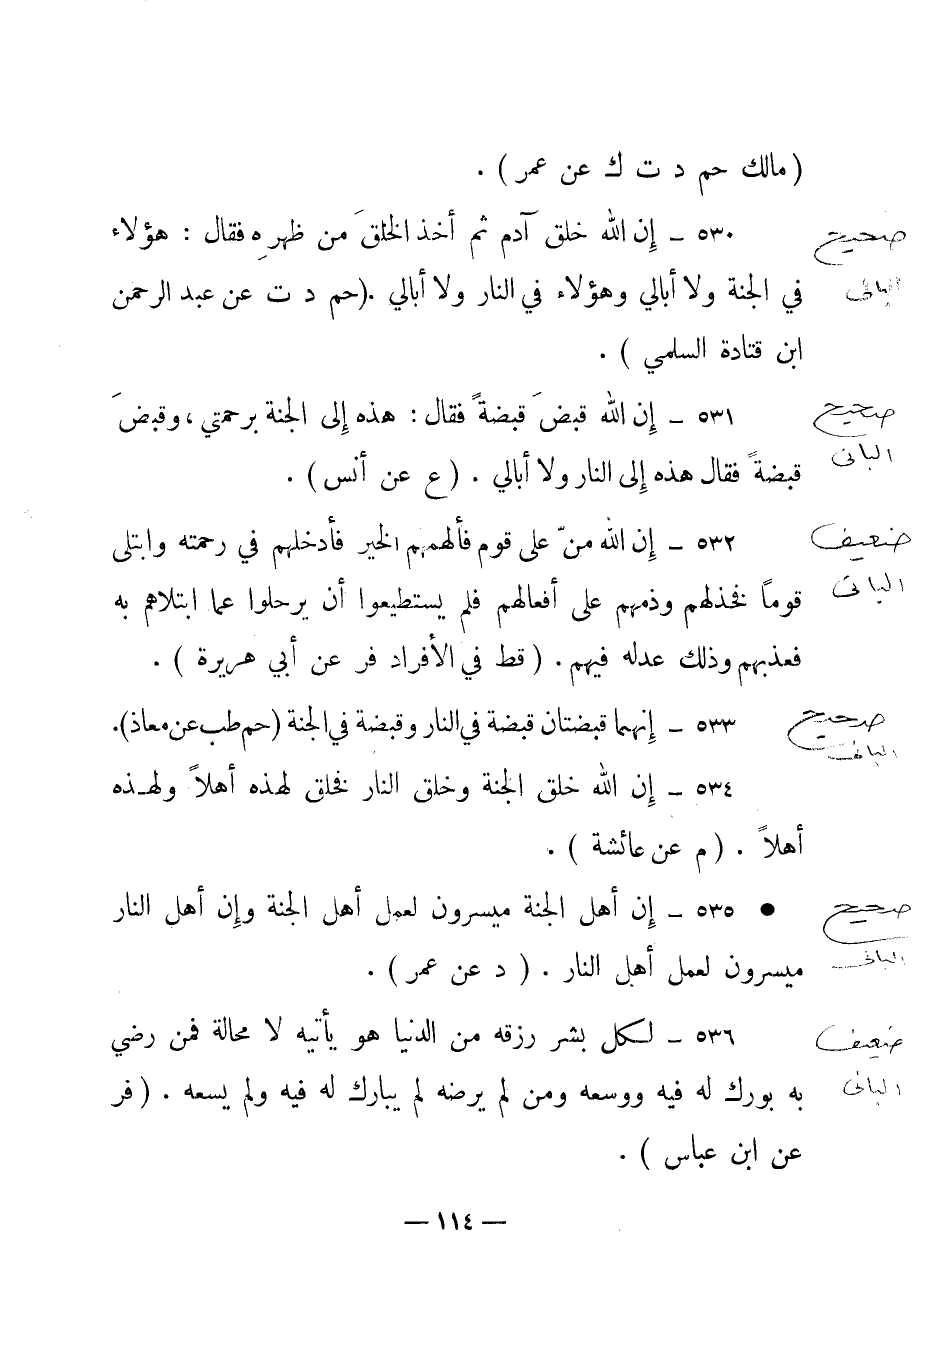 ( مالك حم د ت ك عن عمر ) .
٥٣٠ ـ إن الله خلق آدم ثم أخذ الخلقَ من ظهرِه فقال : هؤلاء
صحيح
في الجنة ولا أبالي وهؤلاء في النار ولا أبالي .(حم د ت عن عبد الرحمن
البانى
ابن قتادة السلمي ) .
٥٣١ ـ إن الله قبضَ قبضةً فقال : هذه إلى الجنة برحمتي ، وقبضَ
صحيح
قبضةً فقال هذه إلى النار ولا أبالي . ( ع عن أنس ) .
البانى
٥٣٢ ـ إن الله منّ على قوم فألهمهم الخير فأدخلهم في رحمته وابتلى
ضعيف
قوماً فخذلهم وذمهم على أفعالهم فلم يستطيعوا أن يرحلوا عما ابتلاهم به
البانى
فعذبهم وذلك عدله فيهم . ( قط في الأفراد فر عن أبي هريرة ) .
٥٣٣ ـ إنهما قبضتان قبضة في النار وقبضة في الجنة (حم طب عن معاذ).
صحيح
البانى
٥٣٤ ـ إن الله خلق الجنة وخلق النار فخلق لهذه أهلاً ولهـذه
أهلاً . ( م عن عائشة ) .
● ٥٣٥ ـ إن أهل الجنة ميسرون لعمل أهل الجنة وإن أهل النار
صحيح
ميسرون لعمل أهل النار . ( د عن عمر ) .
البانى
٥٣٦ ـ لكل بشر رزقه من الدنيا هو يأتيه لا محالة فمن رضي
ضعيف
به بورك له فيه ووسعه ومن لم يرضه لم يبارك له فيه ولم يسعه . ( فر
البانى
عن ابن عباس ) .
— ١١٤ —